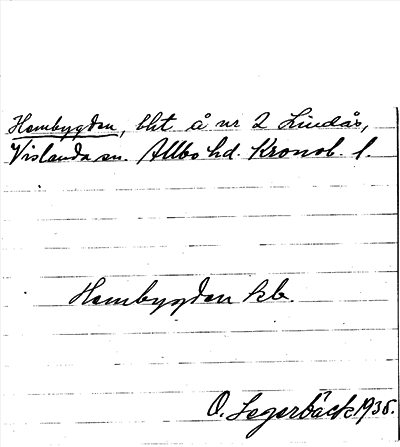 Hembygden, bht å nr 2 Lindås,
Vislanda sn. Allbo hd. Kronob. l.
Hembygden kb.
O. Legerbäck 1936.